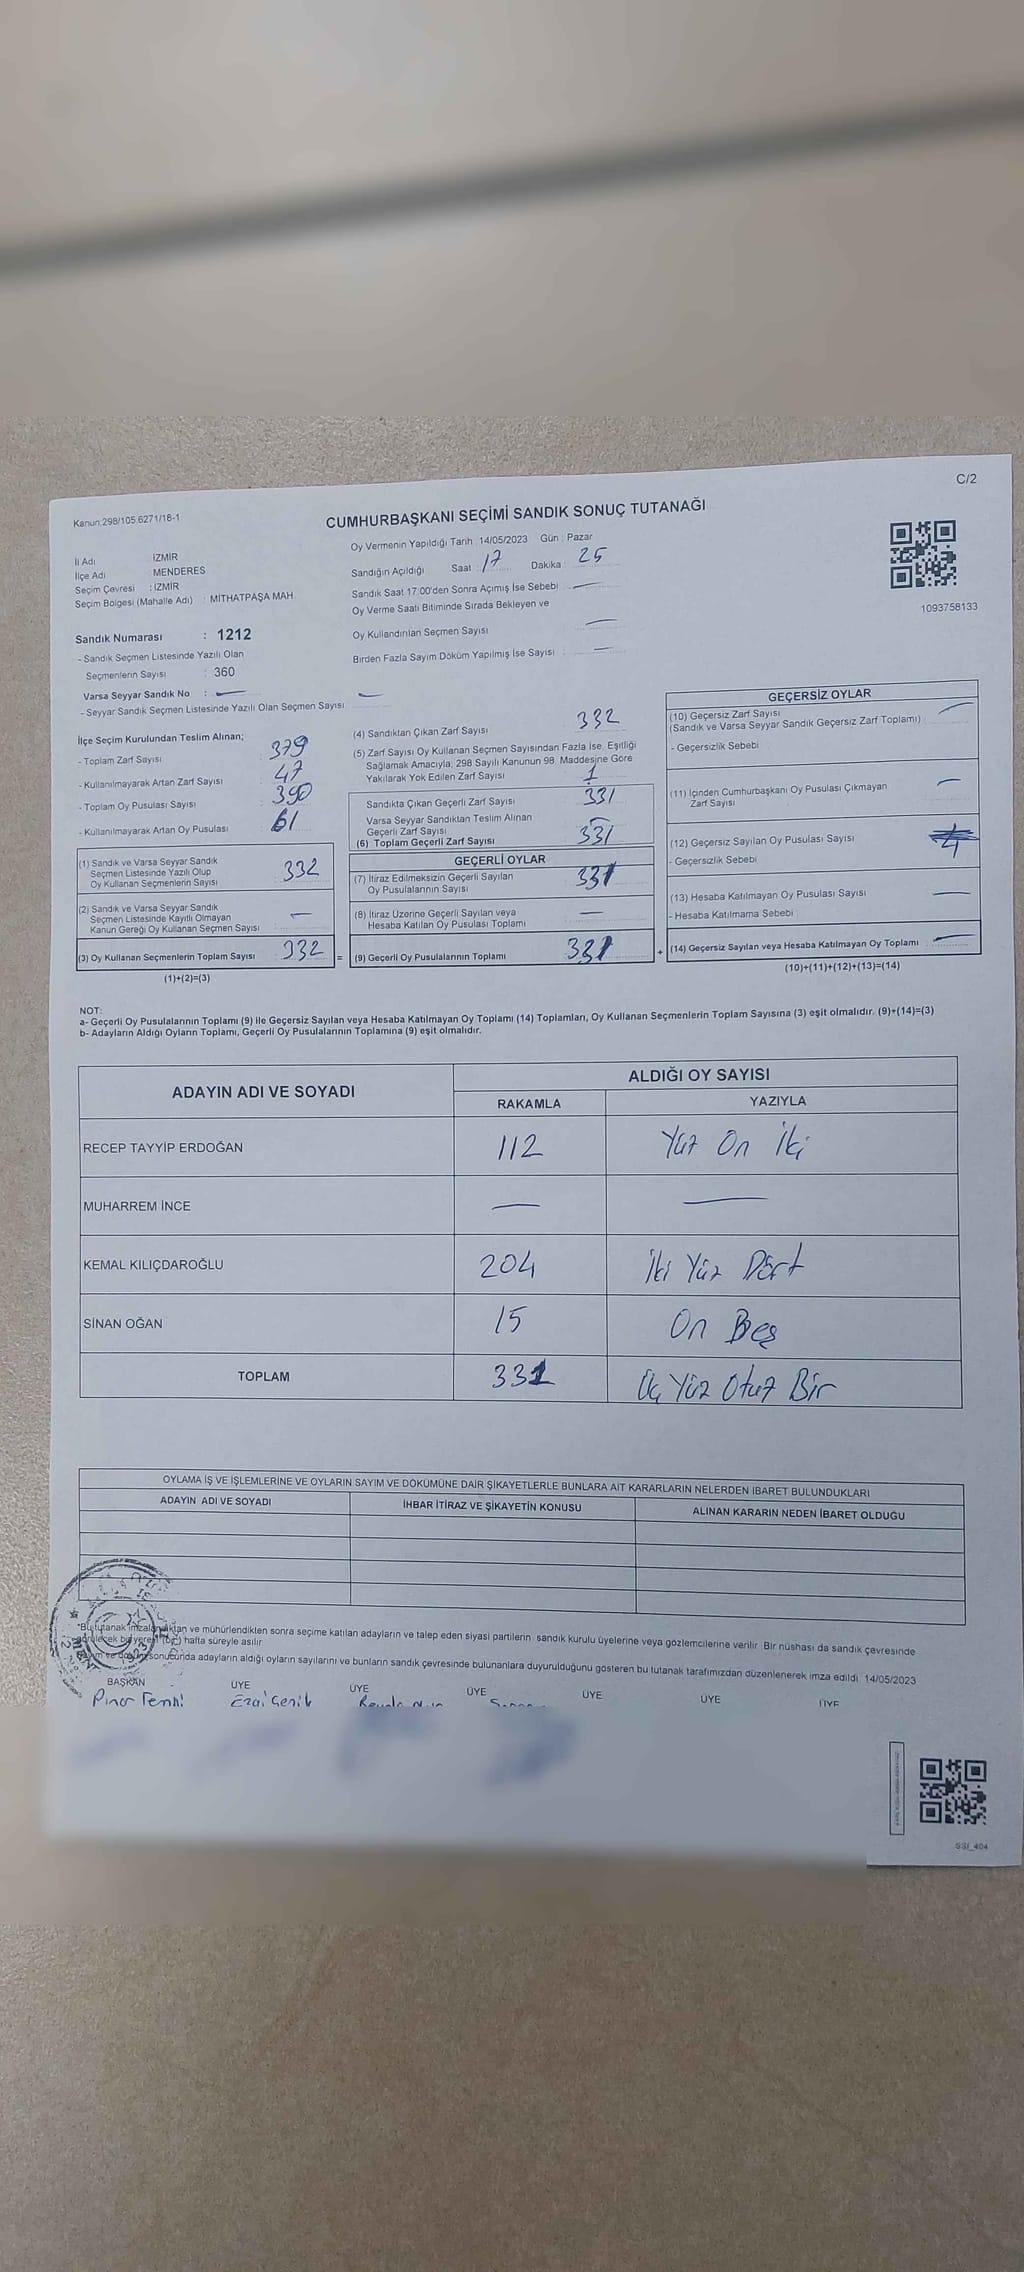 C/2
Kanun:298/105.6271/18-1
CUMHURBAŞKANI SEÇİMİ SANDIK SONUÇ TUTANAĞI
İl Adı İZMİR
İlçe Adı MENDERES
Seçim Çevresi : İZMİR
Seçim Bölgesi (Mahalle Adı) : MİTHATPAŞA MAH.
Oy Vermenin Yapıldığı Tarih 14/05/2023 Gün : Pazar
Sandığın Açıldığı Saat 17 Dakika 25
Sandık Saat 17:00'den Sonra Açımış İse Sebebi —
Oy Verme Saati Bitiminde Sırada Bekleyen ve
Oy Kullandırılan Seçmen Sayısı —
Birden Fazla Sayım Döküm Yapılmış İse Sayısı : —
1093758133
Sandık Numarası : 1212
- Sandık Seçmen Listesinde Yazılı Olan
Seçmenlerin Sayısı : 360
Varsa Seyyar Sandık No : —
- Seyyar Sandık Seçmen Listesinde Yazılı Olan Seçmen Sayısı —
İlçe Seçim Kurulundan Teslim Alınan;
- Toplam Zarf Sayısı 379
- Kullanılmayarak Artan Zarf Sayısı 47
- Toplam Oy Pusulası Sayısı 390
- Kullanılmayarak Artan Oy Pusulası 61
(1) Sandık ve Varsa Seyyar Sandık
Seçmen Listesinde Yazılı Olup
Oy Kullanan Seçmenlerin Sayısı 332
(2) Sandık ve Varsa Seyyar Sandık
Seçmen Listesinde Kayıtlı Olmayan
Kanun Gereği Oy Kullanan Seçmen Sayısı —
(3) Oy Kullanan Seçmenlerin Toplam Sayısı 332 =
(1)+(2)=(3)
(4) Sandıktan Çıkan Zarf Sayısı 332
(5) Zarf Sayısı Oy Kullanan Seçmen Sayısından Fazla İse, Eşitliği
Sağlamak Amacıyla, 298 Sayılı Kanunun 98. Maddesine Göre
Yakılarak Yok Edilen Zarf Sayısı 1
Sandıkta Çıkan Geçerli Zarf Sayısı 331
Varsa Seyyar Sandıktan Teslim Alınan
Geçerli Zarf Sayısı —
(6) Toplam Geçerli Zarf Sayısı 331
GEÇERLİ OYLAR
(7) İtiraz Edilmeksizin Geçerli Sayılan
Oy Pusulalarının Sayısı 331
(8) İtiraz Üzerine Geçerli Sayılan veya
Hesaba Katılan Oy Pusulası Toplamı —
(9) Geçerli Oy Pusulalarının Toplamı 331 +
GEÇERSİZ OYLAR
(10) Geçersiz Zarf Sayısı —
(Sandık ve Varsa Seyyar Sandık Geçersiz Zarf Toplamı)
- Geçersizlik Sebebi
(11) İçinden Cumhurbaşkanı Oy Pusulası Çıkmayan
Zarf Sayısı —
(12) Geçersiz Sayılan Oy Pusulası Sayısı
- Geçersizlik Sebebi
(13) Hesaba Katılmayan Oy Pusulası Sayısı —
- Hesaba Katılmama Sebebi
(14) Geçersiz Sayılan veya Hesaba Katılmayan Oy Toplamı —
(10)+(11)+(12)+(13)=(14)
NOT:
a- Geçerli Oy Pusulalarının Toplamı (9) ile Geçersiz Sayılan veya Hesaba Katılmayan Oy Toplamı (14) Toplamları, Oy Kullanan Seçmenlerin Toplam Sayısına (3) eşit olmalıdır. (9)+(14)=(3)
b- Adayların Aldığı Oyların Toplamı, Geçerli Oy Pusulalarının Toplamına (9) eşit olmalıdır.
ADAYIN ADI VE SOYADI ALDIĞI OY SAYISI
RAKAMLA YAZIYLA
RECEP TAYYİP ERDOĞAN 112 Yüz On İki
MUHARREM İNCE — —
KEMAL KILIÇDAROĞLU 204 İki Yüz Dört
SİNAN OĞAN 15 On Beş
TOPLAM 331 Üç Yüz Otuz Bir
OYLAMA İŞ VE İŞLEMLERİNE VE OYLARIN SAYIM VE DÖKÜMÜNE DAİR ŞİKAYETLERLE BUNLARA AİT KARARLARIN NELERDEN İBARET BULUNDUKLARI
ADAYIN ADI VE SOYADI İHBAR İTİRAZ VE ŞİKAYETİN KONUSU ALINAN KARARIN NEDEN İBARET OLDUĞU
"Bu tutanak imzalandıktan ve mühürlendikten sonra seçime katılan adayların ve talep eden siyasi partilerin sandık kurulu üyelerine veya gözlemcilerine verilir. Bir nüshası da sandık çevresinde
bir yere (bir) hafta süreyle asılır
sonucunda adayların aldığı oyların sayılarını ve bunların sandık çevresinde bulunanlara duyurulduğunu gösteren bu tutanak tarafımızdan düzenlenerek imza edildi. 14/05/2023
BAŞKAN ÜYE ÜYE ÜYE ÜYE ÜYE ÜYE
Pınar
SSI_404